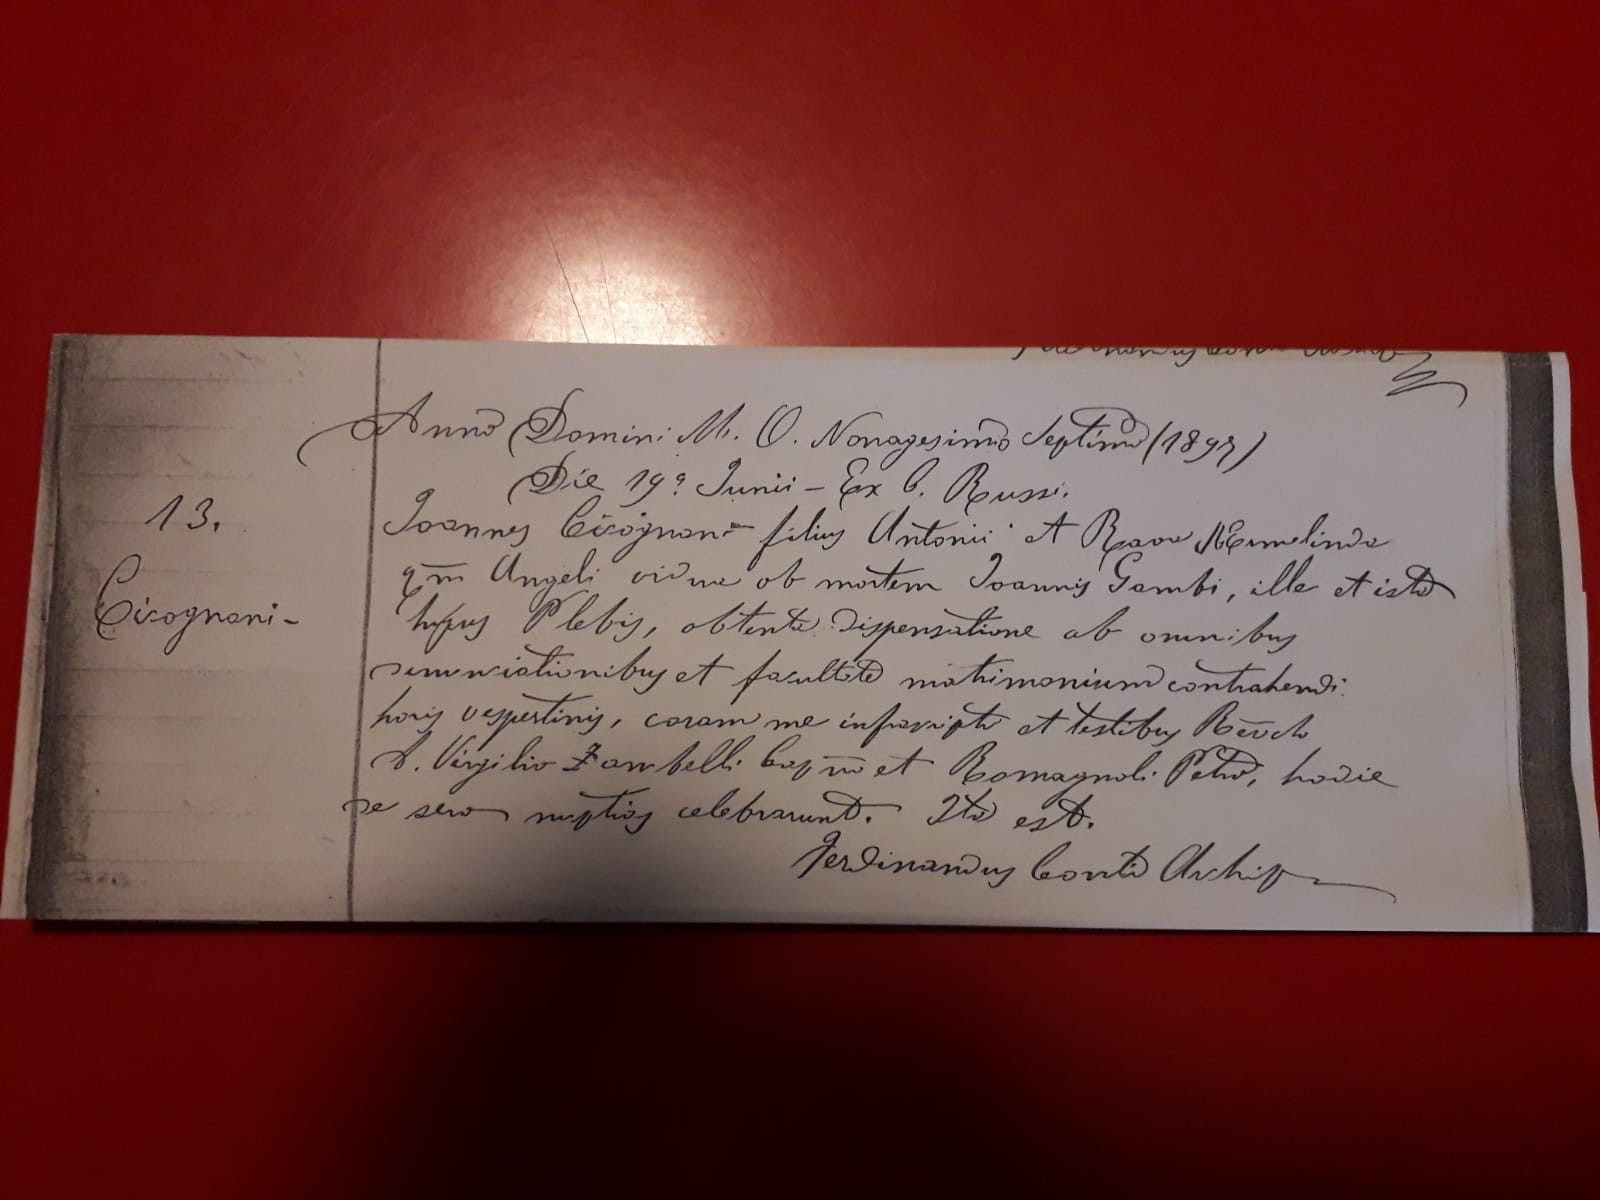 Anno Domini M. O. Nonagesimo Septimo (1897)
Die 19ª Junii - Ex C. Russi.
13.
Cicognani -
Joannes Cicognani filius Antonii et Rava Ermelinda
qm Angeli vidua ob mortem Joannis Gambi, ille et ista
hujus Plebis, obtenta dispensatione ab omnibus
denunciationibus et facultate matrimonium contrahendi
horis vespertinis, coram me infrascripto et testibus Revdo
D. Virgilio Zambelli Capno et Romagnoli Petro, hodie
de sero nuptias celebrarunt. Ita est.
Ferdinandus Conti Archip